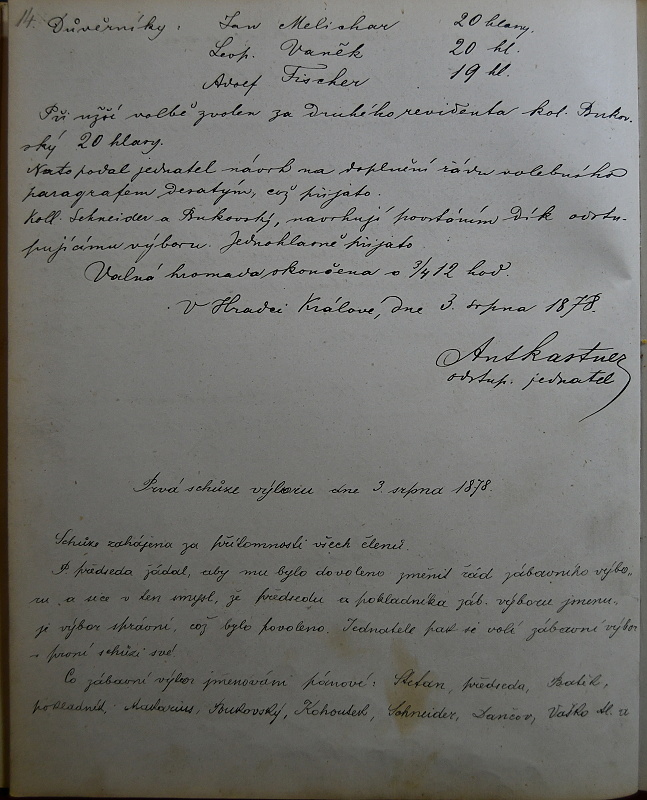 14.
Důvěrníky: Jan Melichar 20 hlasy.
Leop. Vaněk 20 hl.
Adolf Fischer 19 hl.
Při užší volbě zvolen za druhého revidenta kol. Bukov-
ský 20 hlasy.
Nato podal jednatel návrh na doplnění řádu volebního
paragrafem desatým, což přijato.
Koll. Schneider a Bukovský, navrhují povstáním dík odstu-
pujícímu výboru. Jednohlasně přijato
Valná hromada skončena o 3/4 12 hod.
V Hradci Králové, dne 3. srpna 1878.
Ant Kastner
odstup. jednatel
Prvá schůze výboru dne 3. srpna 1878.
Schůze zahájena za přítomnosti všech členů.
P. předseda žádal, aby mu bylo dovoleno změnit řád zábavního výbo-
ru, a sice v ten smysl, že předsedu a pokladníka záb. výboru jmenu-
je výbor správní, což bylo povoleno. Jednatele pak si volí zábavní výbor
v první schůzi své
Co zábavní výbor jmenováni pánové: Štefan, předseda, Batík,
pokladník, Bukovský, Kohoutek, Schneider, Vaťko a